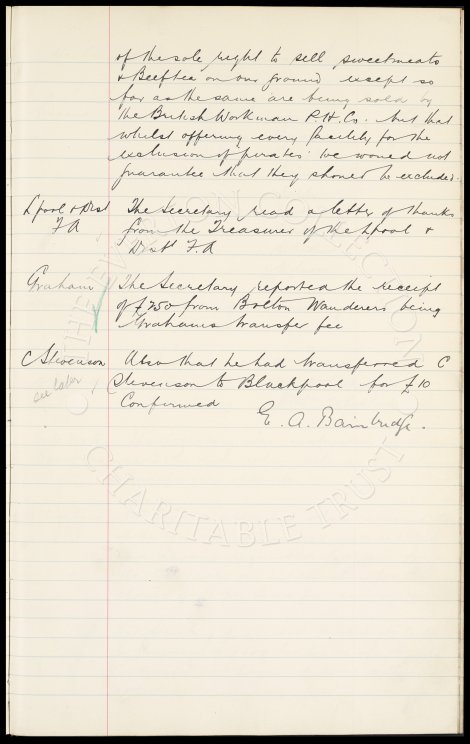 of the sole right to sell sweetmeats
& Beeftea on our ground except so
far as the same are being sold by
the British Workman P.H. Co. but that
whilst offering every facility for the
exclusion of 'pirates' we would not
guarantee that they should be excluded.
L'pool & Dist The Secretary read a letter of thanks
F A from the Treasurer of the L'pool &
Dist F A
Graham The Secretary reported the receipt
of £750 from Bolton Wanderers being
Grahams transfer fee
C Stevenson Also that he had transferred C
see later Stevenson to Blackpool for £10
Confirmed
E. A. Bainbridge.
THE EVERTON COLLECTION
CHARITABLE TRUST